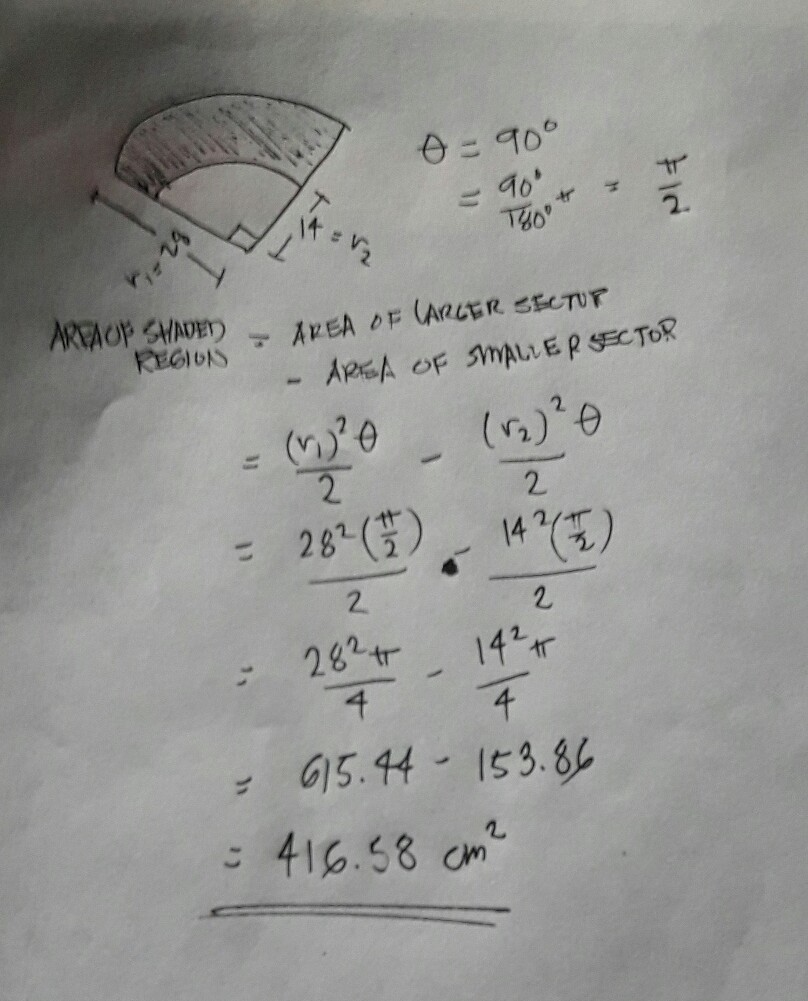 θ = 90°
= 90°/180° π = π/2
r₁ = 28
14 = r₂
AREA OF SHADED REGION = AREA OF LARGER SECTOR
- AREA OF SMALLER SECTOR
= (r₁)²θ/2 - (r₂)²θ/2
= 28²(π/2)/2 - 14²(π/2)/2
= 28²π/4 - 14²π/4
= 615.44 - 153.86
= 416.58 cm²